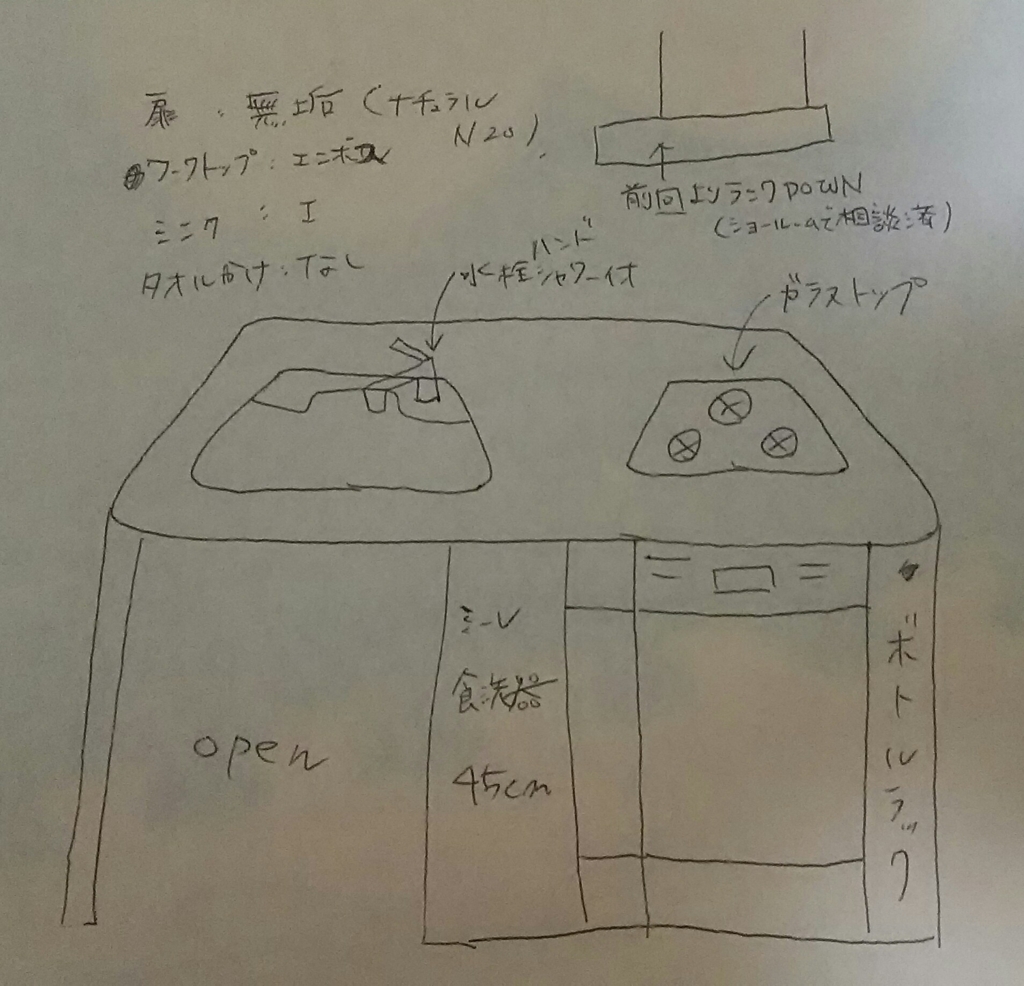 扉：無垢（ナチュラル
N20）
ワークトップ：エンボス
シンク：I
タオルかけ：なし
前回よりランクDOWN
（ショールームで相談済）
ハンド
水栓シャワー付
ガラストップ
ミーレ
食洗器
45cm
open
ボトルラック